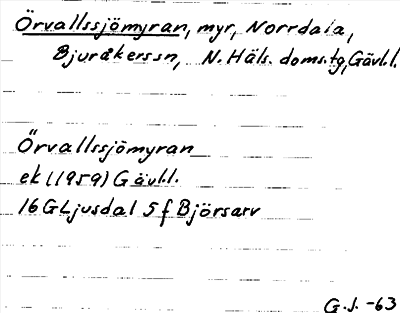 Örvallssjömyran, myr, Norrdala,
Bjuråkerssn, N. Häls. doms.tg, Gävl.l.
Örvallssjömyran
ek (1959) Gävl.l.
16G Ljusdal 5f Björsarv
G.J. -63